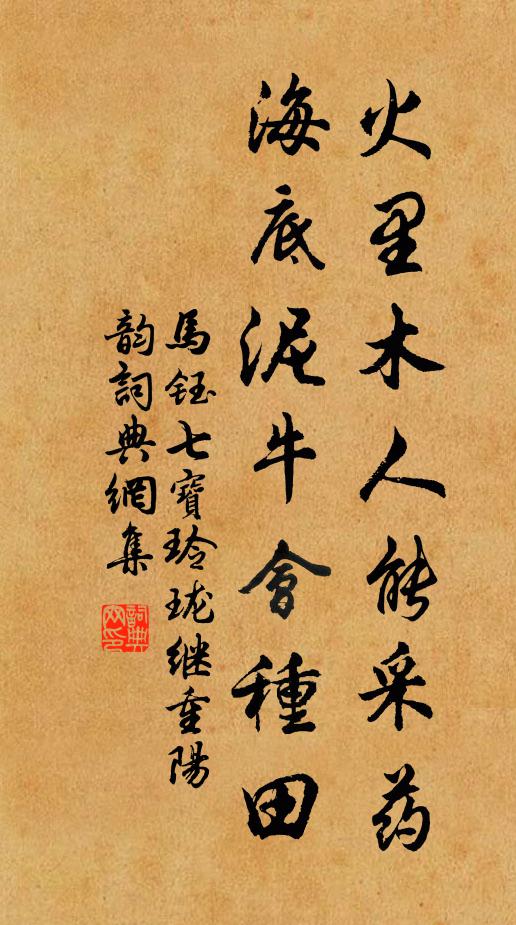 火里木人能采药
海底泥牛會種田
馬鈺七寶玲珑继重陽
韵詞典網集
詞典网印